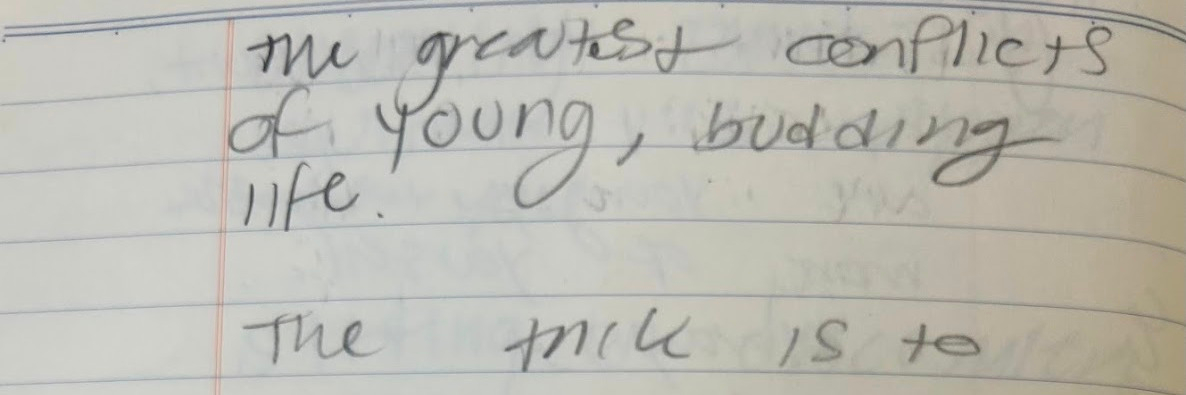 the greatest conflicts
of young, budding
life.
The trick is to